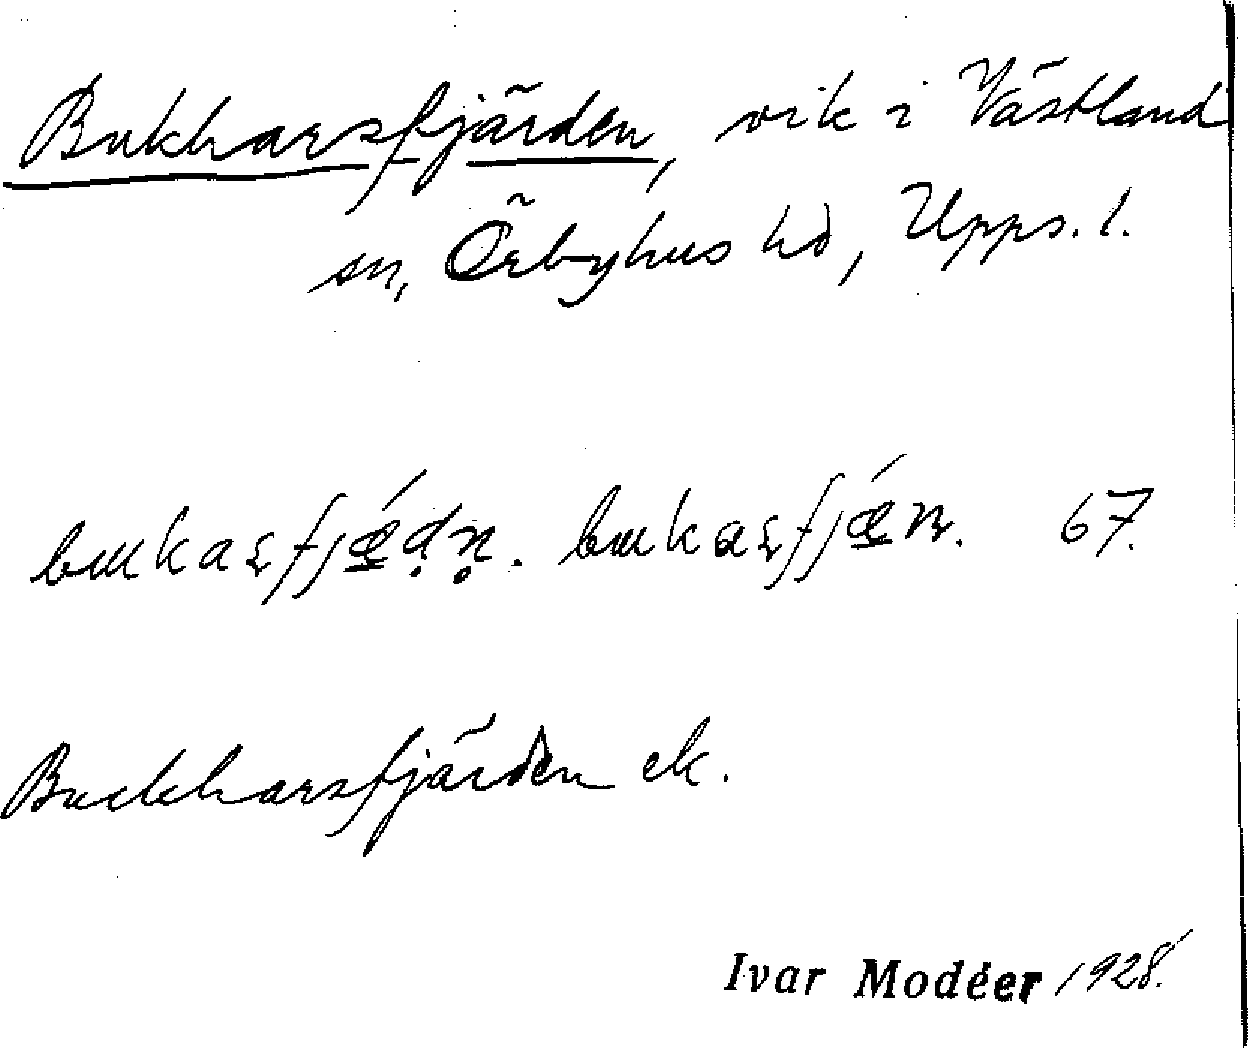 Bukharsfjärden, vik i Västland
sn, Örbyhus hd, Upps. l.
bukasfjǽḍṇ. bukasfjǽn. 67.
Buckharsfjärden ek.
Ivar Modéer 1928.